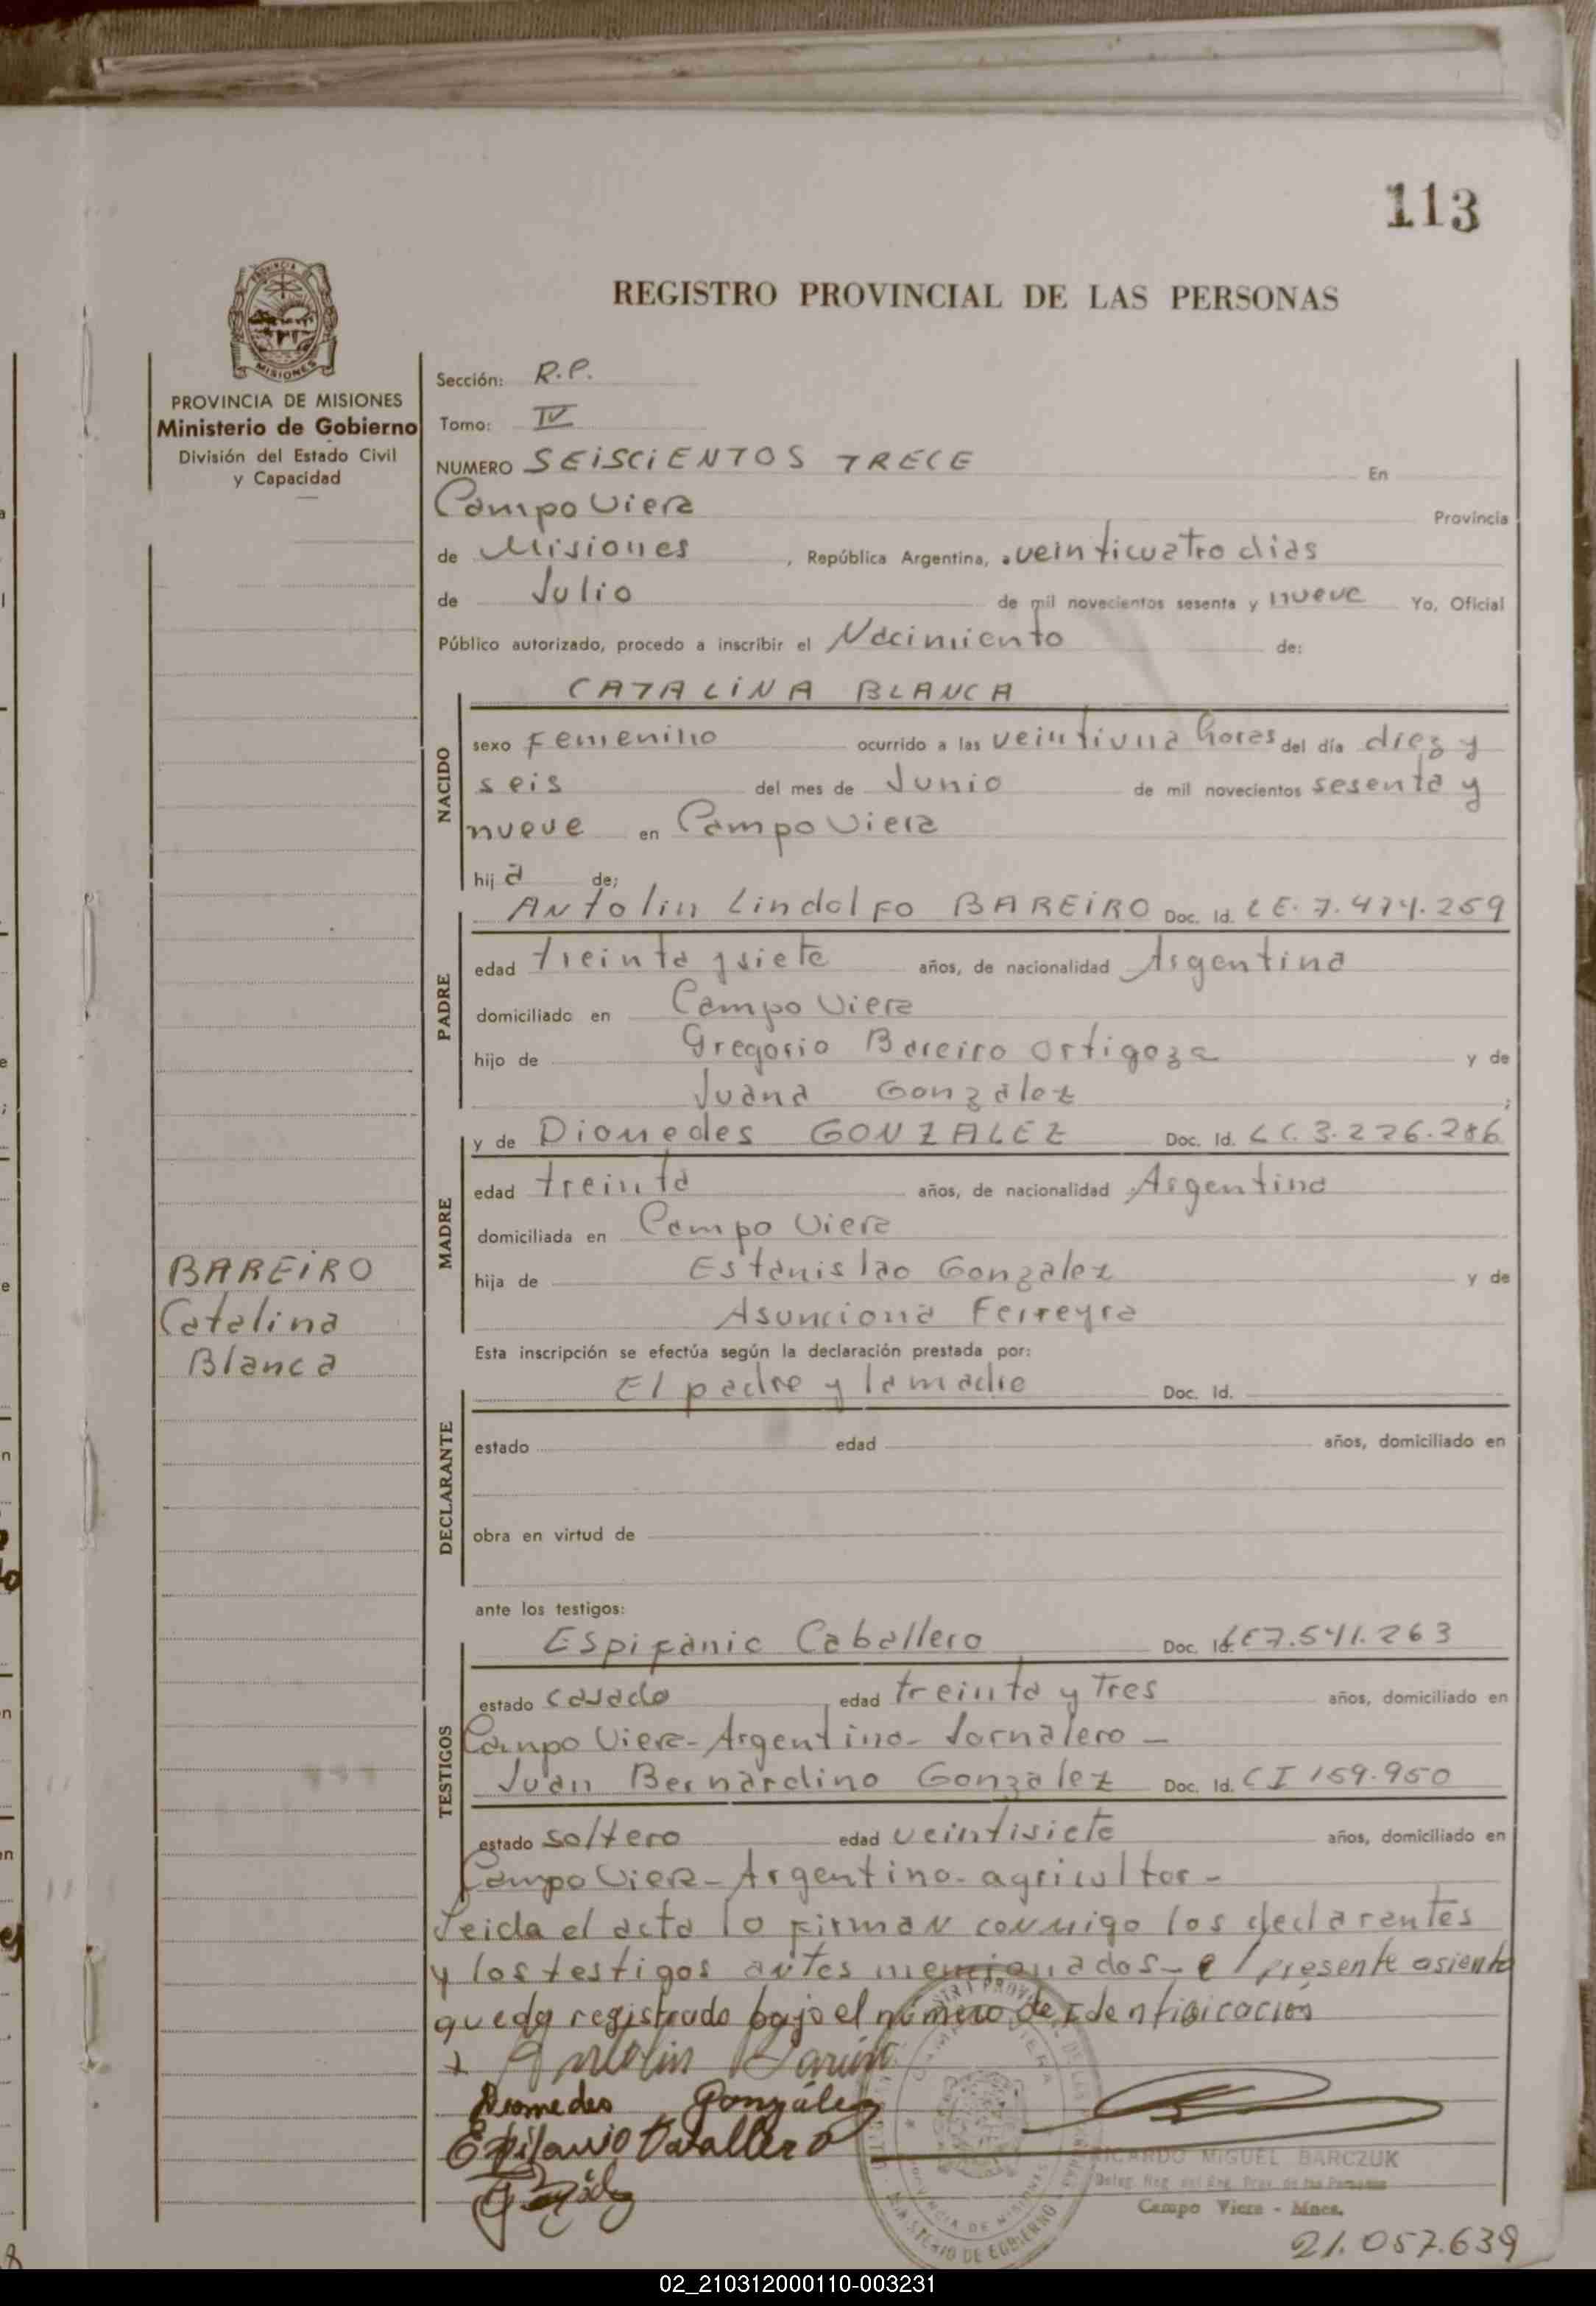 113
REGISTRO PROVINCIAL DE LAS PERSONAS
PROVINCIA
MISIONES
PROVINCIA DE MISIONES
Ministerio de Gobierno
División del Estado Civil
y Capacidad
Sección: R.P.
Tomo: IV
NUMERO SEISCIENTOS TRECE En
Campo Viera Provincia
de Misiones, República Argentina, a veinticuatro dias
de Julio de mil novecientos sesenta y nueve Yo, Oficial
Público autorizado, procedo a inscribir el Nacimiento de:
CATALINA BLANCA
NACIDO
sexo Femenino ocurrido a las veintiuna horas del día diez y
seis del mes de Junio de mil novecientos sesenta y
nueve en Campo Viera
hij a de;
PADRE
Antolin Lindolfo BAREIRO Doc. Id. LE. 7.474.259
edad treinta y siete años, de nacionalidad Argentina
domiciliado en Campo Viera
hijo de Gregorio Bareiro Ortigoza y de
Juana Gonzalez ;
MADRE
y de Diomedes GONZALEZ Doc. Id. LC. 3.226.286
edad treinta años, de nacionalidad Argentina
domiciliada en Campo Viera
hija de Estanislao Gonzalez y de
Asunciona Ferreyra
BAREIRO
Catalina
Blanca
Esta inscripción se efectúa según la declaración prestada por:
DECLARANTE
El padre y la madre Doc. Id.
estado edad años, domiciliado en
obra en virtud de
ante los testigos:
TESTIGOS
Espifanio Caballero Doc. Id. LE 7.541.263
estado casado edad treinta y tres años, domiciliado en
Campo Viera - Argentino - Jornalero -
Juan Bernardino Gonzalez Doc. Id. C I 159.950
estado soltero edad veintisiete años, domiciliado en
Campo Viera - Argentino - agricultor -
Leida el acta lo firman conmigo los declarantes
y los testigos antes mencionados - el presente asiento
queda registrado bajo el número de Identificación
Antolin Bareiro
Diomedes González
Epifanio Caballero
González
MINISTERIO DE GOBIERNO
PROVINCIA DE MISIONES
CAMPO VIERA
RICARDO MIGUEL BARCZUK
Deleg. Reg. del Reg. Prov. de las Personas
Campo Viera - Mnes.
21.057.639
02_210312000110-003231